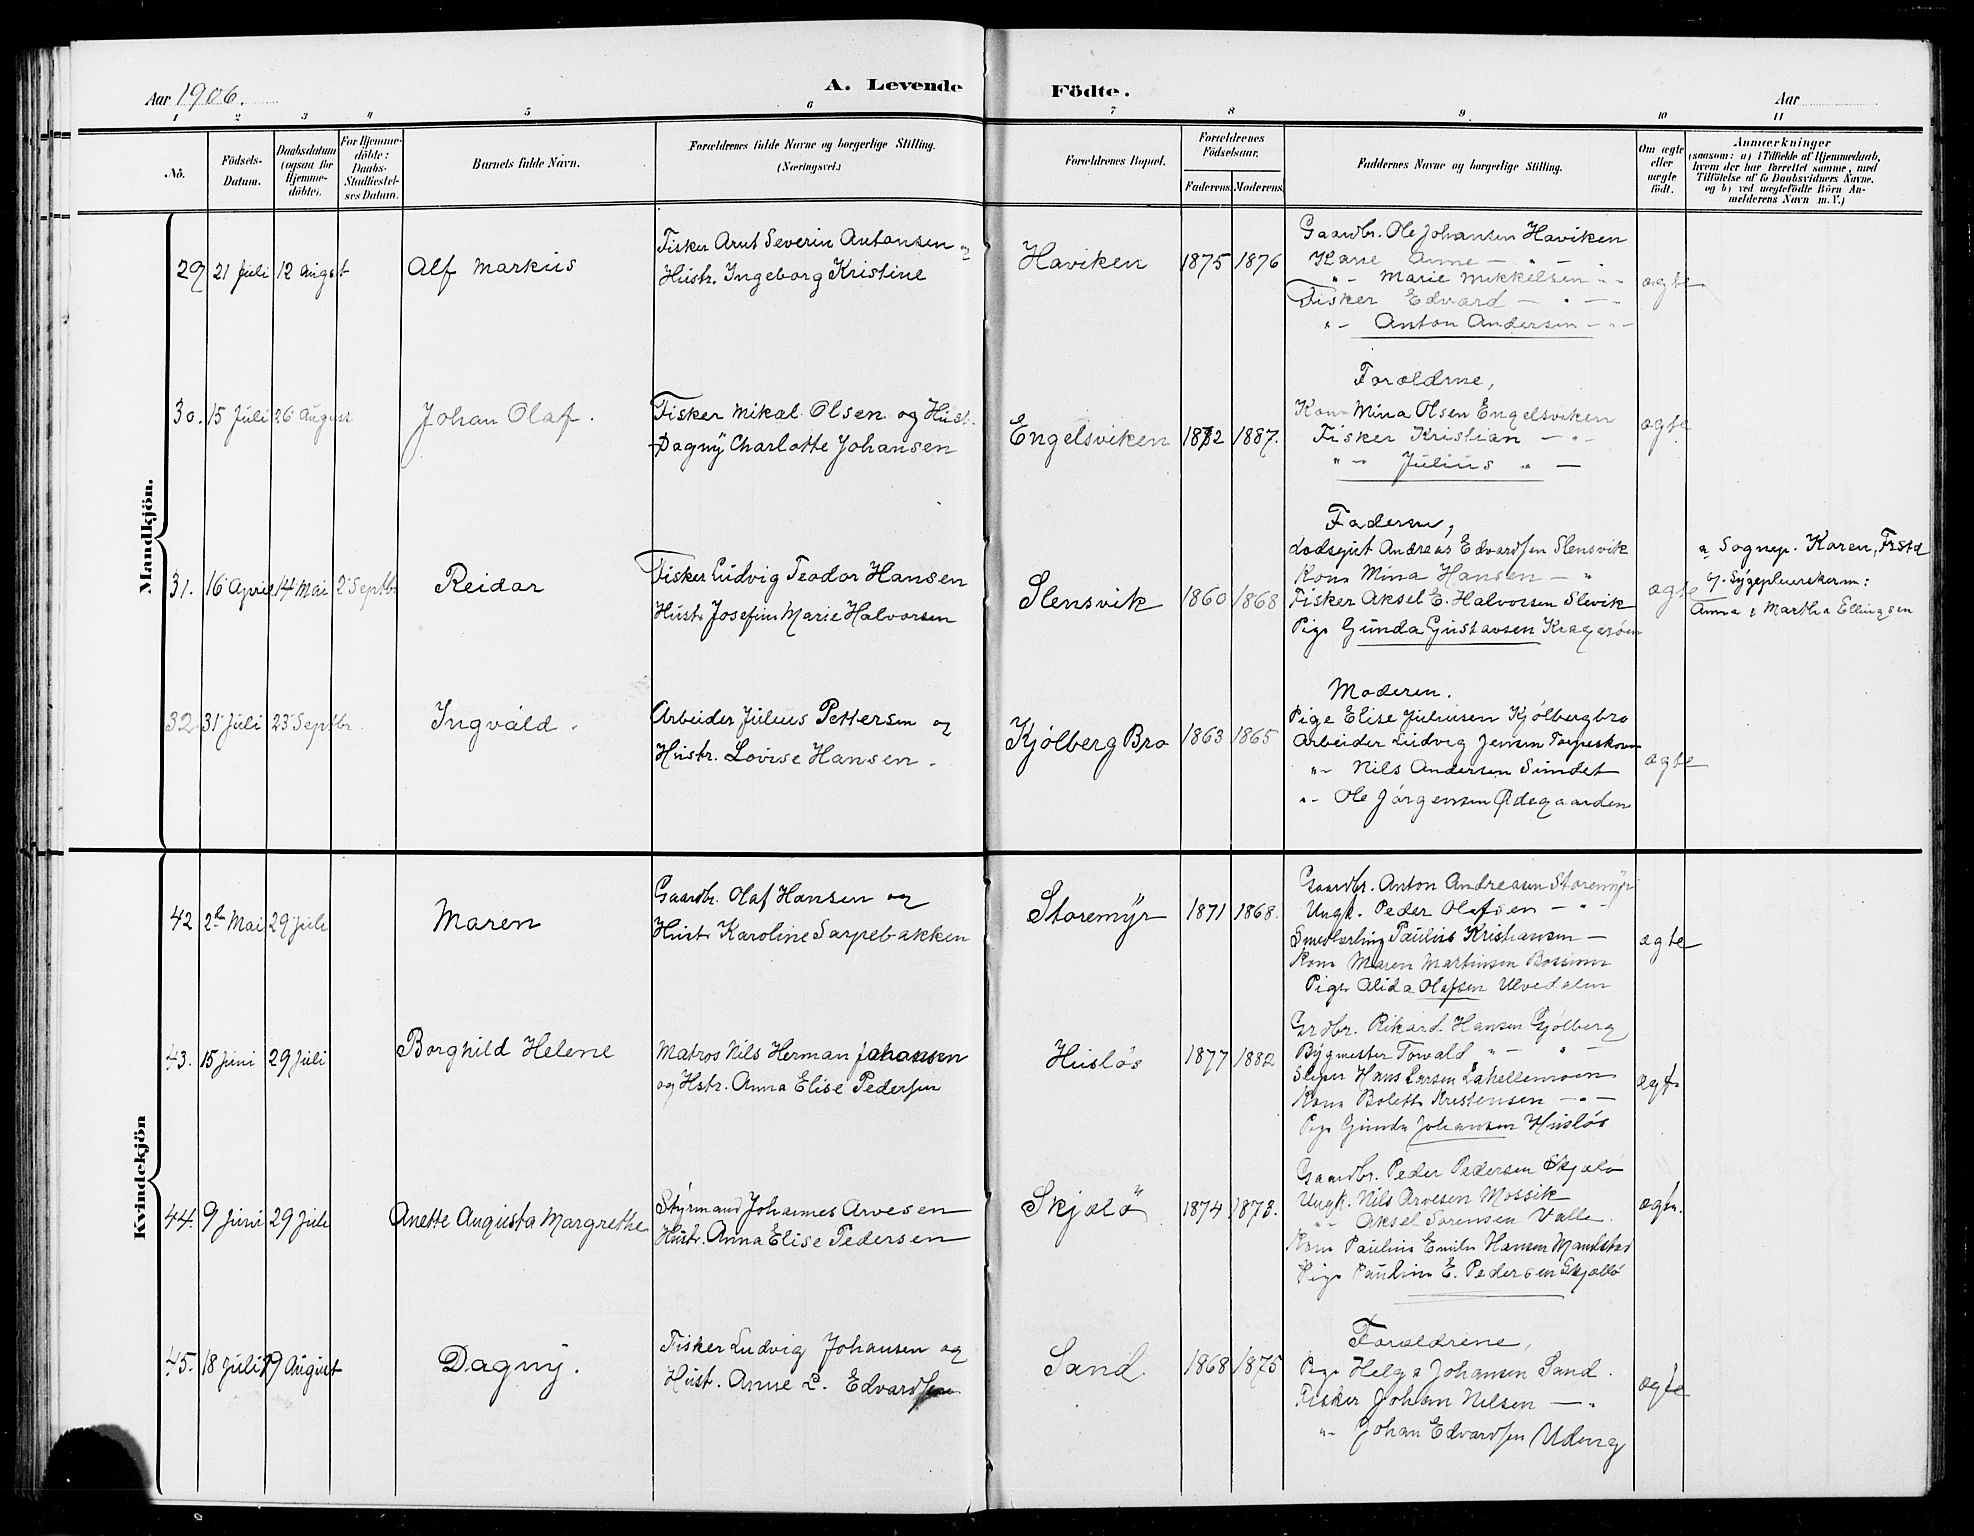 Aar 1906.
A. Levende Födte.
Aar
1 2 3 4 5 6 7 8 9 10 11
No.
Födsels-Datum.
Daabsdatum (ogsaa for Hjemme-döbte).
For Hjemme-döbte: Daabs-Stadfæstel-ses Datum.
Barnets fulde Navn.
Forældrenes fulde Navne og borgerlige Stilling. (Næringsvei.)
Forældrenes Bopæl.
Forældrenes Födselsaar.
Faderens. Moderens.
Faddernes Navne og borgerlige Stilling.
Om ægte eller uægte födt.
Anmærkninger
(saasom: a) i Tilfælde af Hjemmedaab,
hvem der har forrettet samme, med
Tilföielse af to Daabsvidners Navne,
og b) ved uægtefödte Börn An-
melderens Navn m. V.)
Mandkjön.
29 21 Juli 12 August Alf Markus
Fisker Arnt Severin Antonsen og
Hustr. Ingeborg Kristine
Haviken 1875 1876
Gaardbr. Ole Johansen Haviken
Kone Anne — " —
" - Marie Mikkelsen - -
Fisker Edvard — " —
" - Anton Andersen - " -
ægte
30. 15 Juli 26 August Johan Olaf.
Fisker Mikal Olsen og Hust.
Dagny Charlotte Johansen
Engelsviken 1882 1887.
Forældrene,
Kone Mina Olsen Engelsviken
Fisker Kristian — " -
" - Julius " —
ægte
31. 16 April 14 Mai 2 Septbr Reidar
Fisker Ludvig Teodor Hansen
Hustr Josefine Marie Halvorsen
Slensvik 1860 1868
Faderen,
Lodsgut Andreas Edvardsen Slensvik
Kone Mina Hansen — "
Fisker Aksel E. Halvorsen Slevik
Pige Gunda Gustavsen Kragerøen
ægte
a Sognep. Karen, Frstd
Sygepleierskerne:
Anna & Martha Ellingsen
32 31 Juli 23 Septbr. Ingvald.
Arbeider Julius Pettersen og
Hustr. Lovise Hansen.
Kjølberg Bro 1863 1865
Moderen.
Pige Elise Juliusen Kjølbergbro
Arbeider Ludvig Jensen
" - Nils Andersen Sundet
" - Ole Jørgensen Ødegaarden
ægte
Kvindekjön
42 2den Mai 29 Juli Maren
Gaardbr. Olaf Hansen og
Hustr Karoline Sarpebakken
Storemyr 1871 1868.
Gaardbr. Anton Andreasen Storemyr
Ungk. Peder Olafsen — " -
Smedlærling Paulus Kristiansen —
Kone Maren Martinsen
Pige Alida Olafsen Ulvedalen
ægte
43. 15 Juni 29 Juli Borghild Helene
Matros Nils Herman Johansen
og Hstr. Anna Elise Pedersen
Husløs 1877 1882
Grdbr. Rikard Hansen Gjølberg
Bygmester Torvald " - " -
Hans Larsen Lahellemoen
Kone Bolette Kristensen — " —
Pige Gunda Johansen Husløs
ægte
44. 9 Juni 29 Juli Anette Augusta Margrethe
Styrmand Johannes Arvesen
Hustr. Anna Elise Pedersen
Skjælö 1874 1873.
Gaardbr. Peder Pedersen Skjælø
Ungk. Nils Arvesen Mossik
" - Aksel Sørensen Valle.
Kone Pauline Emilie Hansen
Pige Pauline E. Pedersen Skjælø
ægte.
45. 18 Juli 19 August Dagny.
Fisker Ludvig Johansen og
Hust. Anne L. Edvardsen
Sand. 1868 1875
Forældrene,
Pige Helga Johansen Sand.
Fisker Johan Nilsen — "
" - Johan Edvardsen Udeng
ægte